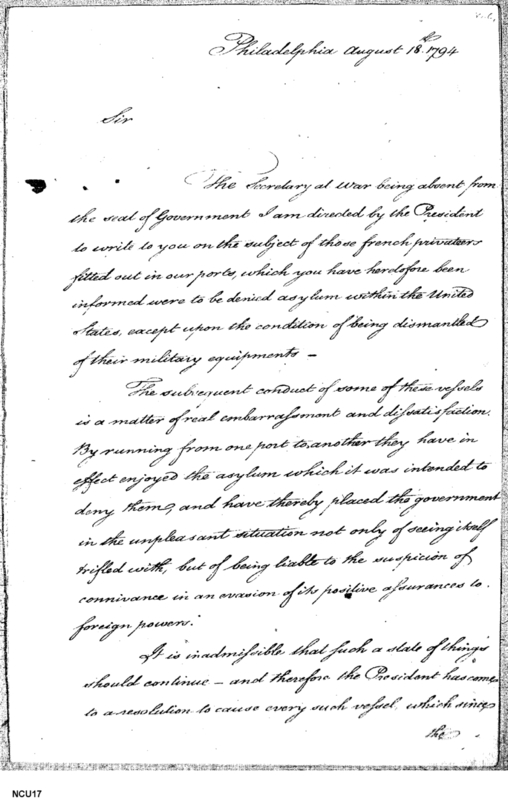 Philadelphia August 18.th 1794
Sir
The Secretary at War being absent from
the seat of Government I am directed by the President
to write to you on the subject of those french privateers
fitted out in our ports, which you have heretofore been
informed were to be denied asylum within the United
States, except upon the condition of being dismantled
of their military equipments —
The subsequent conduct of some of these vessels
is a matter of real embarrassment and dissatisfaction.
By running from one port to another they have in
effect enjoyed the asylum which it was intended to
deny them, and have thereby placed the government
in the unpleasant situation not only of seeing itself
trifled with, but of being liable to the suspicion of
connivance in an evasion of its positive assurances to
foreign powers.
It is inadmissible that such a state of things
should continue — and therefore the President has come
to a resolution to cause every such vessel which since
the
NCU17